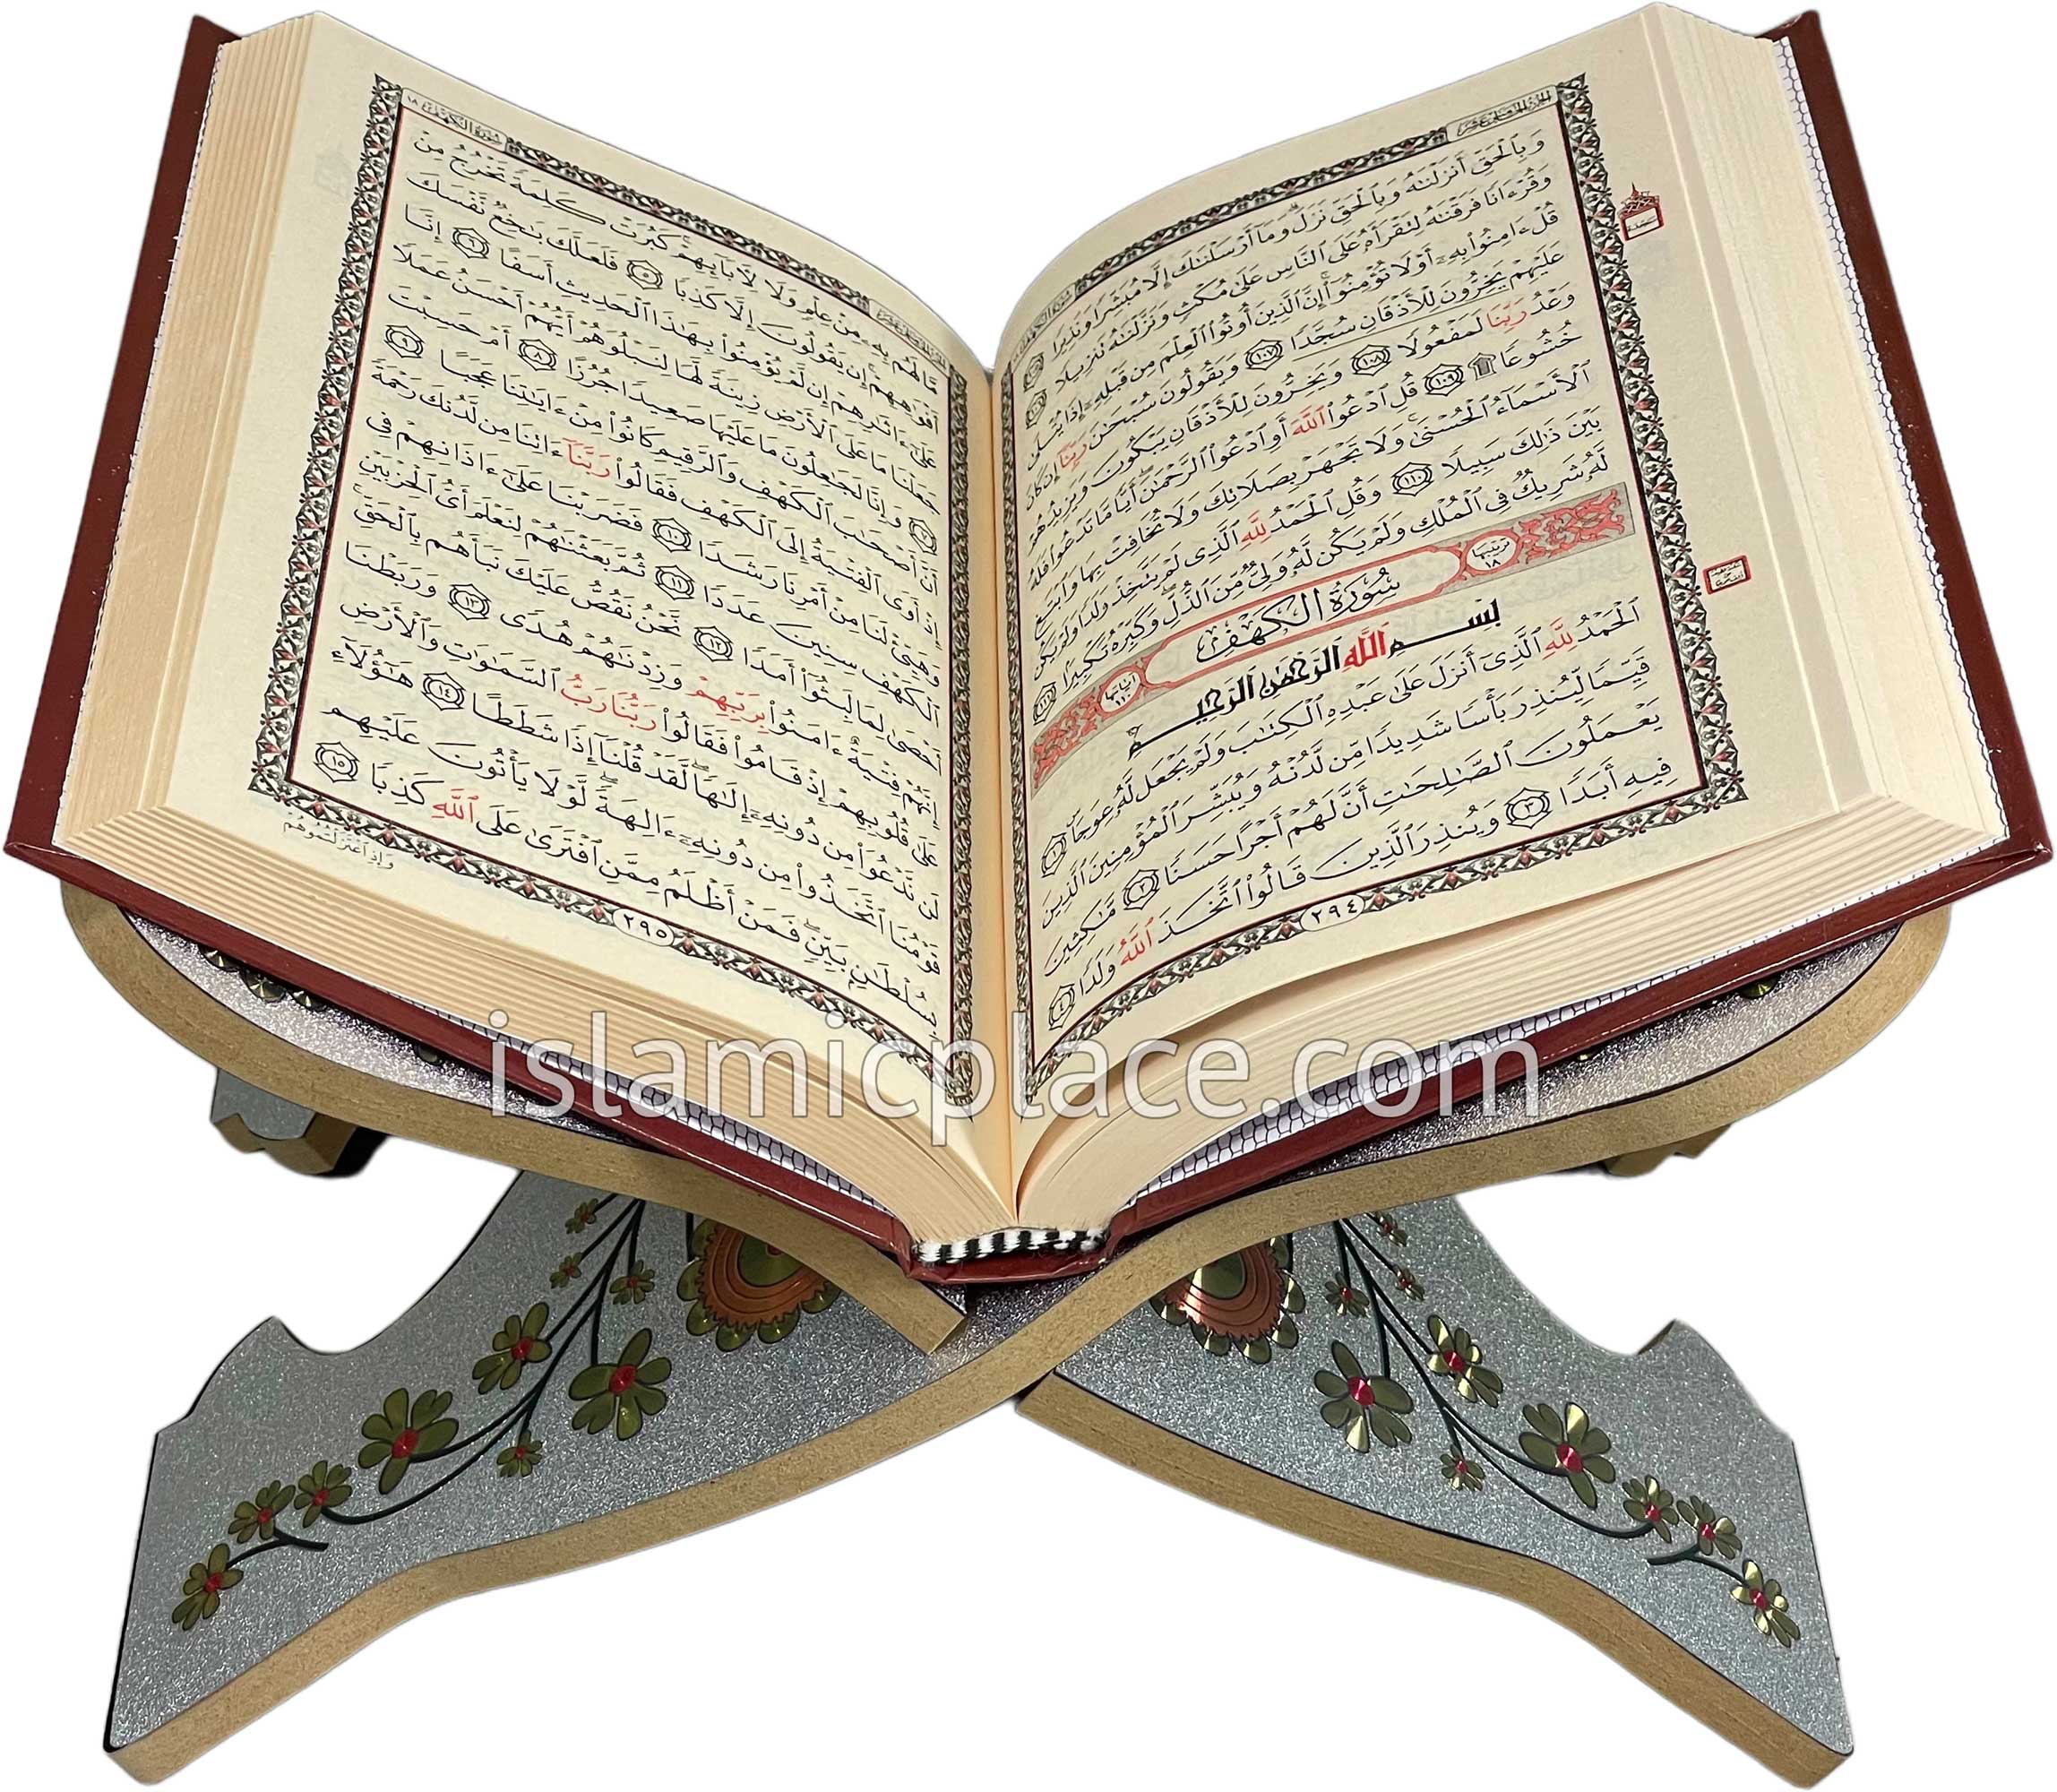 الجزء الخامس عشر
وَبِٱلْحَقِّ أَنزَلْنَٰهُ وَبِٱلْحَقِّ نَزَلَ ۗ وَمَآ أَرْسَلْنَٰكَ إِلَّا مُبَشِّرًا وَنَذِيرًا ١٠٥
وَقُرْءَانًا فَرَقْنَٰهُ لِتَقْرَأَهُۥ عَلَى ٱلنَّاسِ عَلَىٰ مُكْثٍ وَنَزَّلْنَٰهُ تَنزِيلًا ١٠٦
قُلْ ءَامِنُوا۟ بِهِۦٓ أَوْ لَا تُؤْمِنُوٓا۟ ۚ إِنَّ ٱلَّذِينَ أُوتُوا۟ ٱلْعِلْمَ مِن قَبْلِهِۦٓ إِذَا يُتْلَىٰ
عَلَيْهِمْ يَخِرُّونَ لِلْأَذْقَانِ سُجَّدًا ١٠٧ وَيَقُولُونَ سُبْحَٰنَ رَبِّنَآ إِن كَانَ
وَعْدُ رَبِّنَا لَمَفْعُولًا ١٠٨ وَيَخِرُّونَ لِلْأَذْقَانِ يَبْكُونَ وَيَزِيدُهُمْ
خُشُوعًا ۩ ١٠٩ قُلِ ٱدْعُوا۟ ٱللَّهَ أَوِ ٱدْعُوا۟ ٱلرَّحْمَٰنَ ۖ أَيًّا مَّا تَدْعُوا۟ فَلَهُ
ٱلْأَسْمَآءُ ٱلْحُسْنَىٰ ۚ وَلَا تَجْهَرْ بِصَلَاتِكَ وَلَا تُخَافِتْ بِهَا وَٱبْتَغِ
بَيْنَ ذَٰلِكَ سَبِيلًا ١١٠ وَقُلِ ٱلْحَمْدُ لِلَّهِ ٱلَّذِى لَمْ يَتَّخِذْ وَلَدًا وَلَمْ يَكُن
لَّهُۥ شَرِيكٌ فِى ٱلْمُلْكِ وَلَمْ يَكُن لَّهُۥ وَلِىٌّ مِّنَ ٱلذُّلِّ ۖ وَكَبِّرْهُ تَكْبِيرًا ١١١
ترتيبها ١٨ سُورَةُ الكَهْفِ آياتها ١١٠
بسم الله الرحمن الرحيم
ٱلْحَمْدُ لِلَّهِ ٱلَّذِىٓ أَنزَلَ عَلَىٰ عَبْدِهِ ٱلْكِتَٰبَ وَلَمْ يَجْعَل لَّهُۥ عِوَجَا ۜ ١
قَيِّمًا لِّيُنذِرَ بَأْسًا شَدِيدًا مِّن لَّدُنْهُ وَيُبَشِّرَ ٱلْمُؤْمِنِينَ ٱلَّذِينَ
يَعْمَلُونَ ٱلصَّٰلِحَٰتِ أَنَّ لَهُمْ أَجْرًا حَسَنًا ٢ مَّٰكِثِينَ
فِيهِ أَبَدًا ٣ وَيُنذِرَ ٱلَّذِينَ قَالُوا۟ ٱتَّخَذَ ٱللَّهُ وَلَدًا ٤
٢٩٤
سورة الكهف ١٨
مَّا لَهُم بِهِۦ مِنْ عِلْمٍ وَلَا لِءَابَآئِهِمْ ۚ كَبُرَتْ كَلِمَةً تَخْرُجُ مِنْ
أَفْوَٰهِهِمْ ۚ إِن يَقُولُونَ إِلَّا كَذِبًا ٥ فَلَعَلَّكَ بَٰخِعٌ نَّفْسَكَ
عَلَىٰٓ ءَاثَٰرِهِمْ إِن لَّمْ يُؤْمِنُوا۟ بِهَٰذَا ٱلْحَدِيثِ أَسَفًا ٦ إِنَّا
جَعَلْنَا مَا عَلَى ٱلْأَرْضِ زِينَةً لَّهَا لِنَبْلُوَهُمْ أَيُّهُمْ أَحْسَنُ عَمَلًا
٧ وَإِنَّا لَجَٰعِلُونَ مَا عَلَيْهَا صَعِيدًا جُرُزًا ٨ أَمْ حَسِبْتَ
أَنَّ أَصْحَٰبَ ٱلْكَهْفِ وَٱلرَّقِيمِ كَانُوا۟ مِنْ ءَايَٰتِنَا عَجَبًا ٩
إِذْ أَوَى ٱلْفِتْيَةُ إِلَى ٱلْكَهْفِ فَقَالُوا۟ رَبَّنَآ ءَاتِنَا مِن لَّدُنكَ رَحْمَةً
وَهَيِّئْ لَنَا مِنْ أَمْرِنَا رَشَدًا ١٠ فَضَرَبْنَا عَلَىٰٓ ءَاذَانِهِمْ فِى
ٱلْكَهْفِ سِنِينَ عَدَدًا ١١ ثُمَّ بَعَثْنَٰهُمْ لِنَعْلَمَ أَىُّ ٱلْحِزْبَيْنِ
أَحْصَىٰ لِمَا لَبِثُوٓا۟ أَمَدًا ١٢ نَّحْنُ نَقُصُّ عَلَيْكَ نَبَأَهُم بِٱلْحَقِّ ۚ
إِنَّهُمْ فِتْيَةٌ ءَامَنُوا۟ بِرَبِّهِمْ وَزِدْنَٰهُمْ هُدًى ١٣ وَرَبَطْنَا
عَلَىٰ قُلُوبِهِمْ إِذْ قَامُوا۟ فَقَالُوا۟ رَبُّنَا رَبُّ ٱلسَّمَٰوَٰتِ وَٱلْأَرْضِ
لَن نَّدْعُوَا۟ مِن دُونِهِۦٓ إِلَٰهًا ۖ لَّقَدْ قُلْنَآ إِذًا شَطَطًا ١٤ هَٰٓؤُلَآءِ
قَوْمُنَا ٱتَّخَذُوا۟ مِن دُونِهِۦٓ ءَالِهَةً ۖ لَّوْلَا يَأْتُونَ عَلَيْهِم
بِسُلْطَٰنٍۭ بَيِّنٍ ۖ فَمَنْ أَظْلَمُ مِمَّنِ ٱفْتَرَىٰ عَلَى ٱللَّهِ كَذِبًا ١٥
٢٩٥
وَإِذِ ٱعْتَزَلْتُمُوهُمْ
islamicplace.com